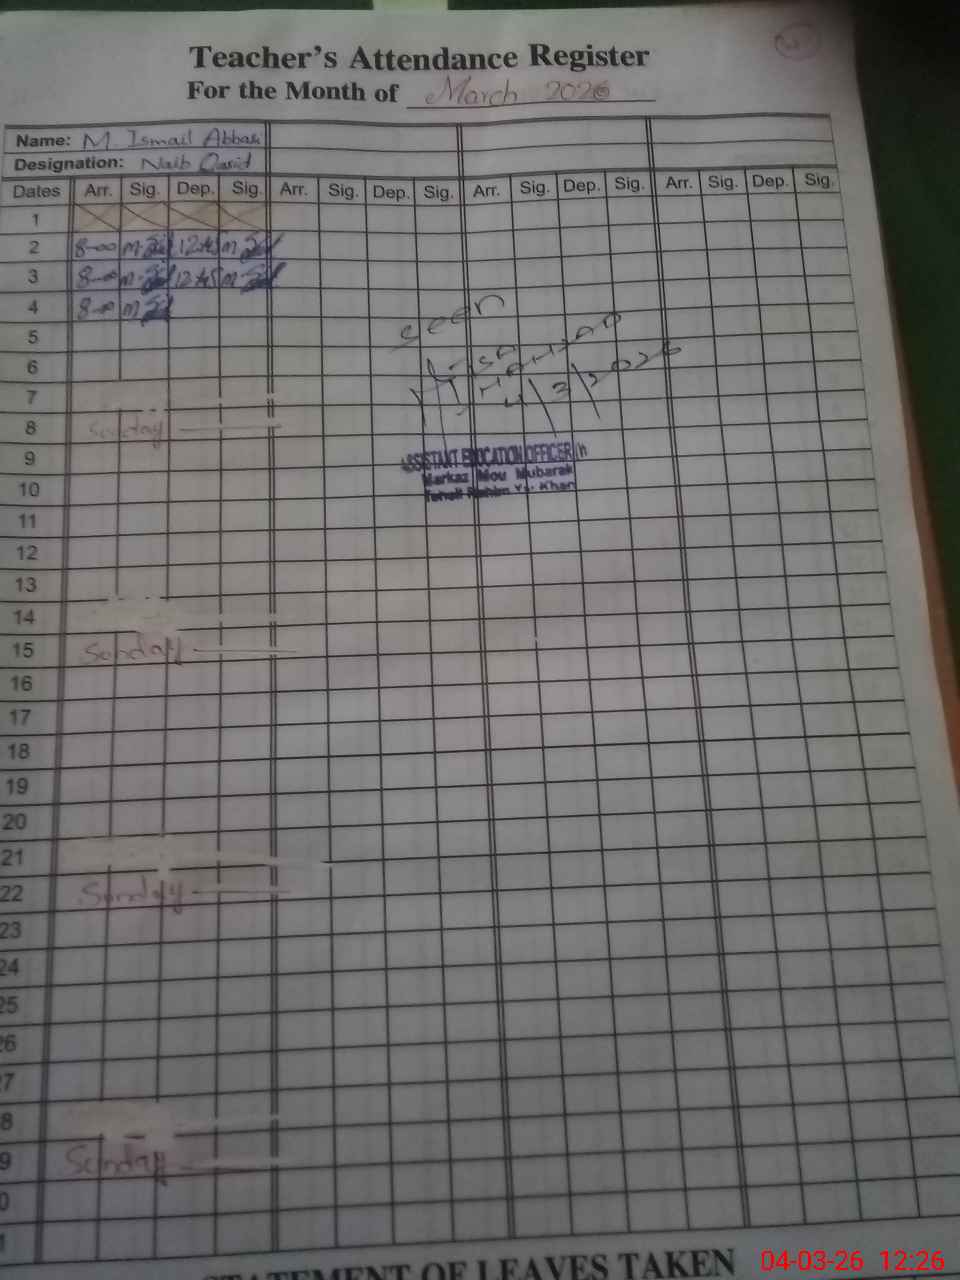 Teacher's Attendance Register
For the Month of March 2026
Name: M Ismail Abbasi
Designation: Naib Qasid
Dates Arr. Sig. Dep. Sig. Arr. Sig. Dep. Sig. Arr. Sig. Dep. Sig. Arr. Sig. Dep. Sig.
1
2 8-00 12:45
3 8-00 12:45
4 8-00
seen
5
6
7
4/3/2026
8 Sunday
9
ASSISTANT EDUCATION OFFICER
Markaz Mou Mubarak
Tehsil Rahim Yar Khan
10
11
12
13
14
15 Sunday
16
17
18
19
20
21
22 Sunday
23
24
25
26
27
28
29 Sunday
STATEMENT OF LEAVES TAKEN
04-03-26 12:26